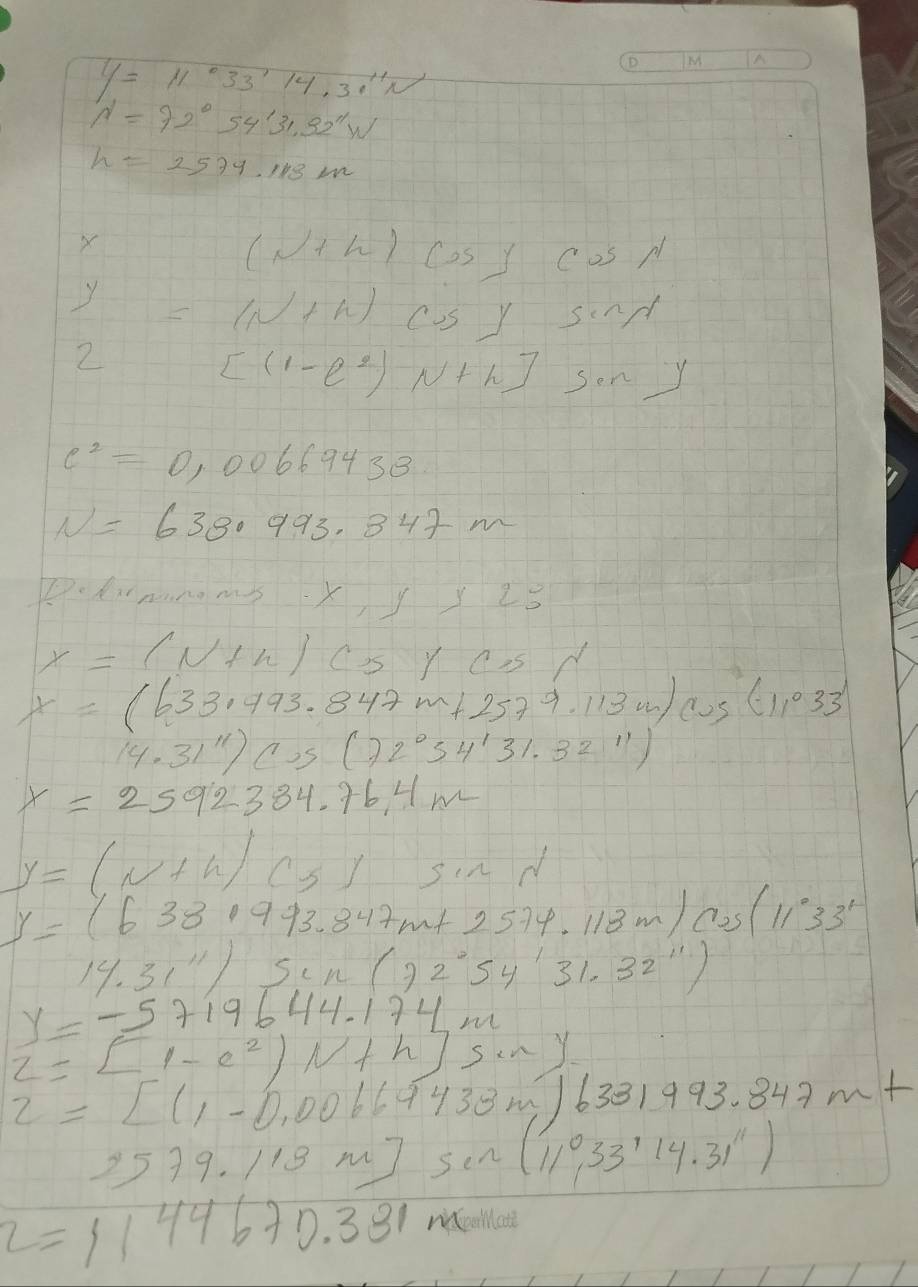 D M A
y = 11° 33' 14.31" N
λ = 72° 54' 31.32" W
h = 2579.118 m
x (N+h) cos y cos λ
y = (N+h) cos y sen λ
z [(1-e²) N+h] sen y
e² = 0,00669438
N = 638.993.847 m
Determinamos x, y y z:
x = (N+h) cos y cos λ
x = (638.993.847 m + 2579.118 m) cos (11° 33'
14.31") cos (72° 54' 31.32")
x = 2592384.764 m
y = (N+h) cos y sin λ
y = (638.993.847 m + 2579.118 m) cos (11° 33'
14.31") sen (72° 54' 31.32")
y = -5719644.174 m
z = [1-e²) N+h] sen y
z = [(1-0,00669438 m) 6381993.847 m +
2579.118 m] sen (11° 33' 14.31")
z = 1144670.381 m